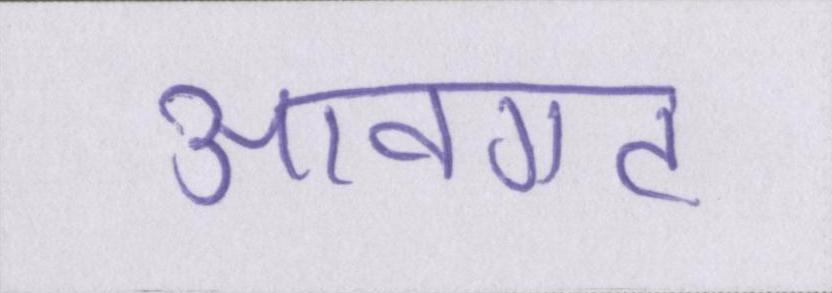 आवगट